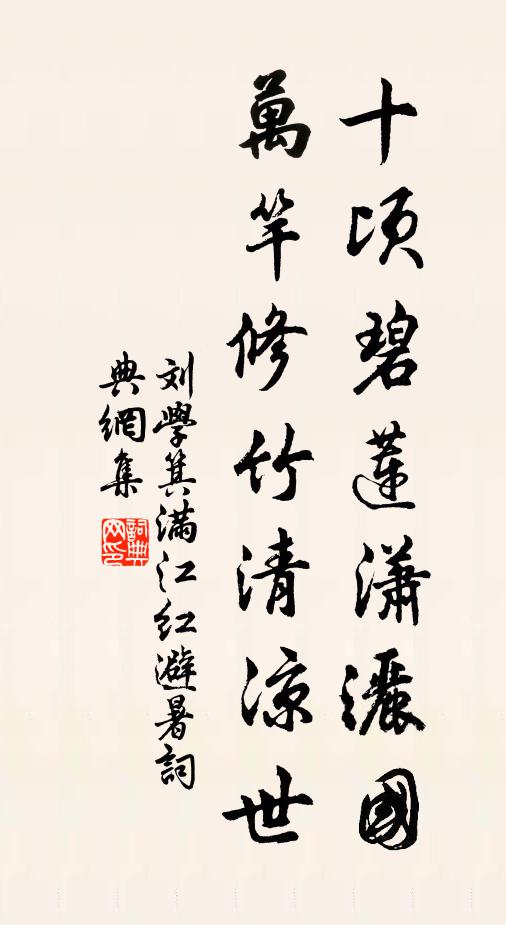 十頃碧蓮瀟灑國
萬竿修竹清凉世
刘學箕满江红避暑詞
典網集
詞典网印